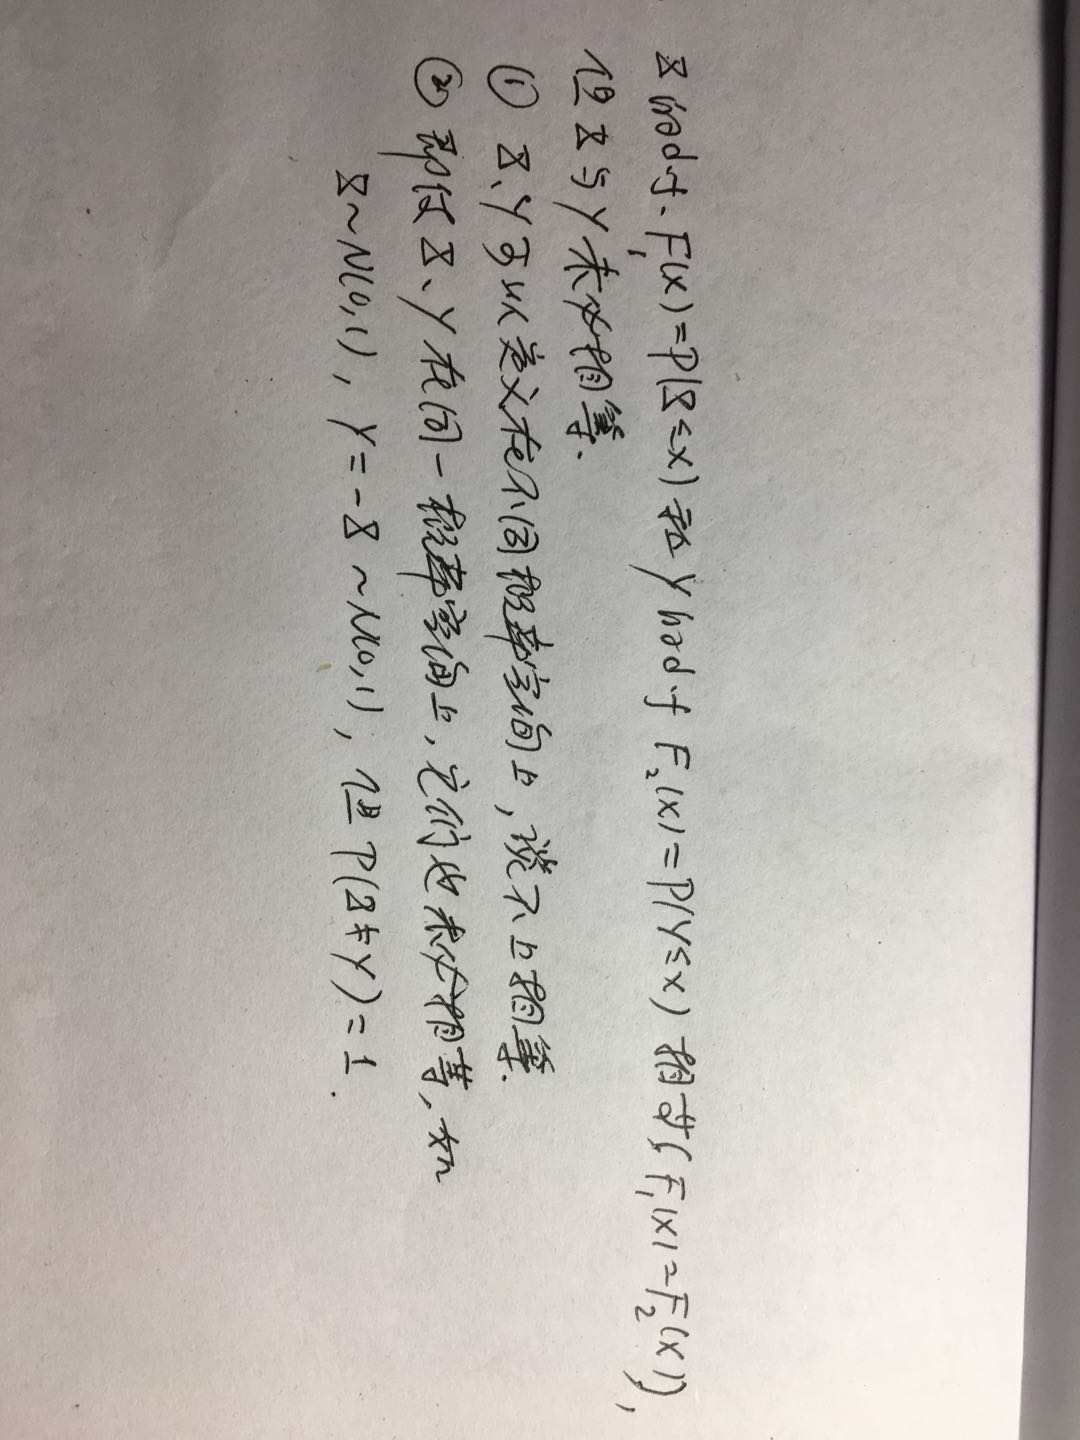 X的d.f. F₁(x)=P(X≤x)和Y的d.f F₂(x)=P(Y≤x)相等(F₁(x)=F₂(x)),
但X与Y未必相等.
① X、Y可以定义在不同概率空间上,谈不上相等.
② 即使X、Y在同一概率空间上,它们也未必相等,如
X~N(0,1), Y=-X~N(0,1), 但P(X≠Y)=1.